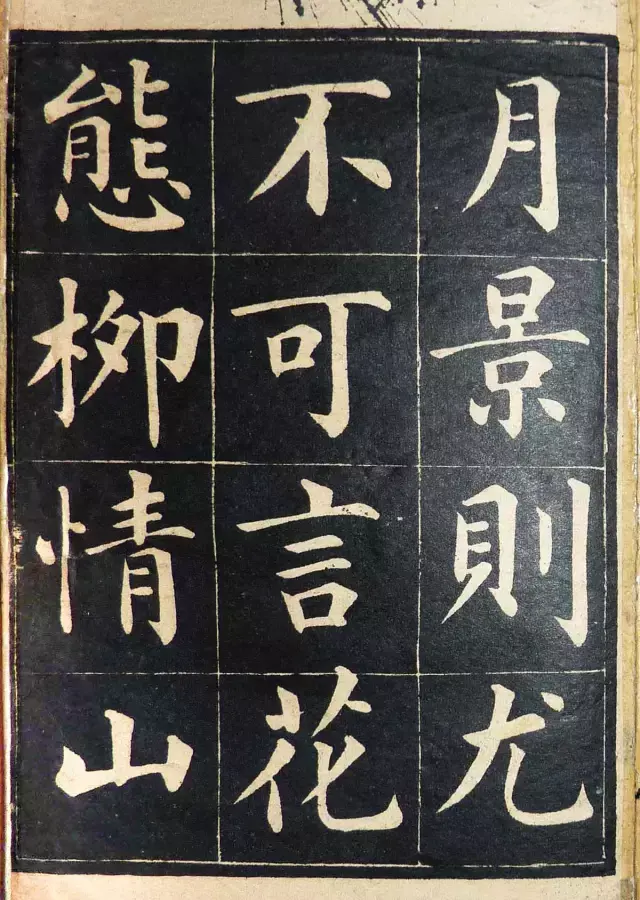 月景則尤
不可言花
態柳情山